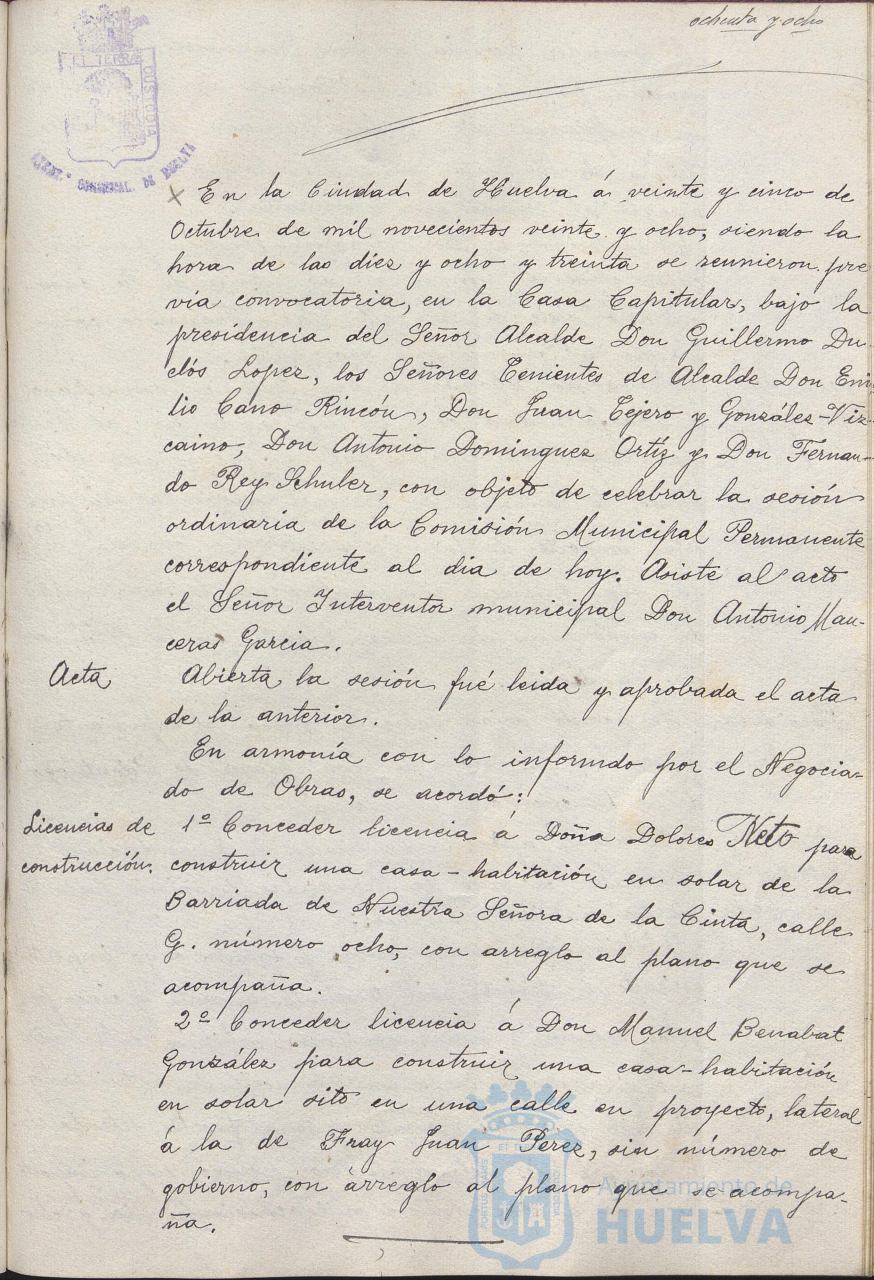 ochenta y ocho
EL TERRAE
CUSTODIA
AYUNT. DE HUELVA
En la Ciudad de Huelva á veinte y cinco de
Octubre de mil novecientos veinte y ocho, siendo la
hora de las diez y ocho y treinta se reunieron pre
via convocatoria, en la Casa Capitular, bajo la
presidencia del Señor Alcalde Don Guillermo Du-
clós Lopez, los Señores Tenientes de Alcalde Don Emi
lio Cano Rincón, Don Juan Tejero y González-Viz-
caino, Don Antonio Dominguez Ortíz y Don Fernan-
do Rey Schuler, con objeto de celebrar la sesión
ordinaria de la Comisión Municipal Permanente
correspondiente al dia de hoy. Asiste al acto
el Señor Interventor municipal Don Antonio Man-
ceras Garcia.
Acta
Abierta la sesión fué leida y aprobada el acta
de la anterior.
En armonía con lo informado por el Negocia-
do de Obras, se acordó:
Licencias de
construcción.
1º Conceder licencia á Doña Dolores Neto para
construir una casa-habitación en solar de la
Barriada de Nuestra Señora de la Cinta, calle
G. número ocho, con arreglo al plano que se
acompaña.
2º Conceder licencia á Don Manuel Benabat
González para construir una casa-habitación
en solar sito en una calle en proyecto, lateral
á la de Fray Juan Perez, sin número de
gobierno, con arreglo al plano que se acompa-
ña.
Ayuntamiento de
HUELVA